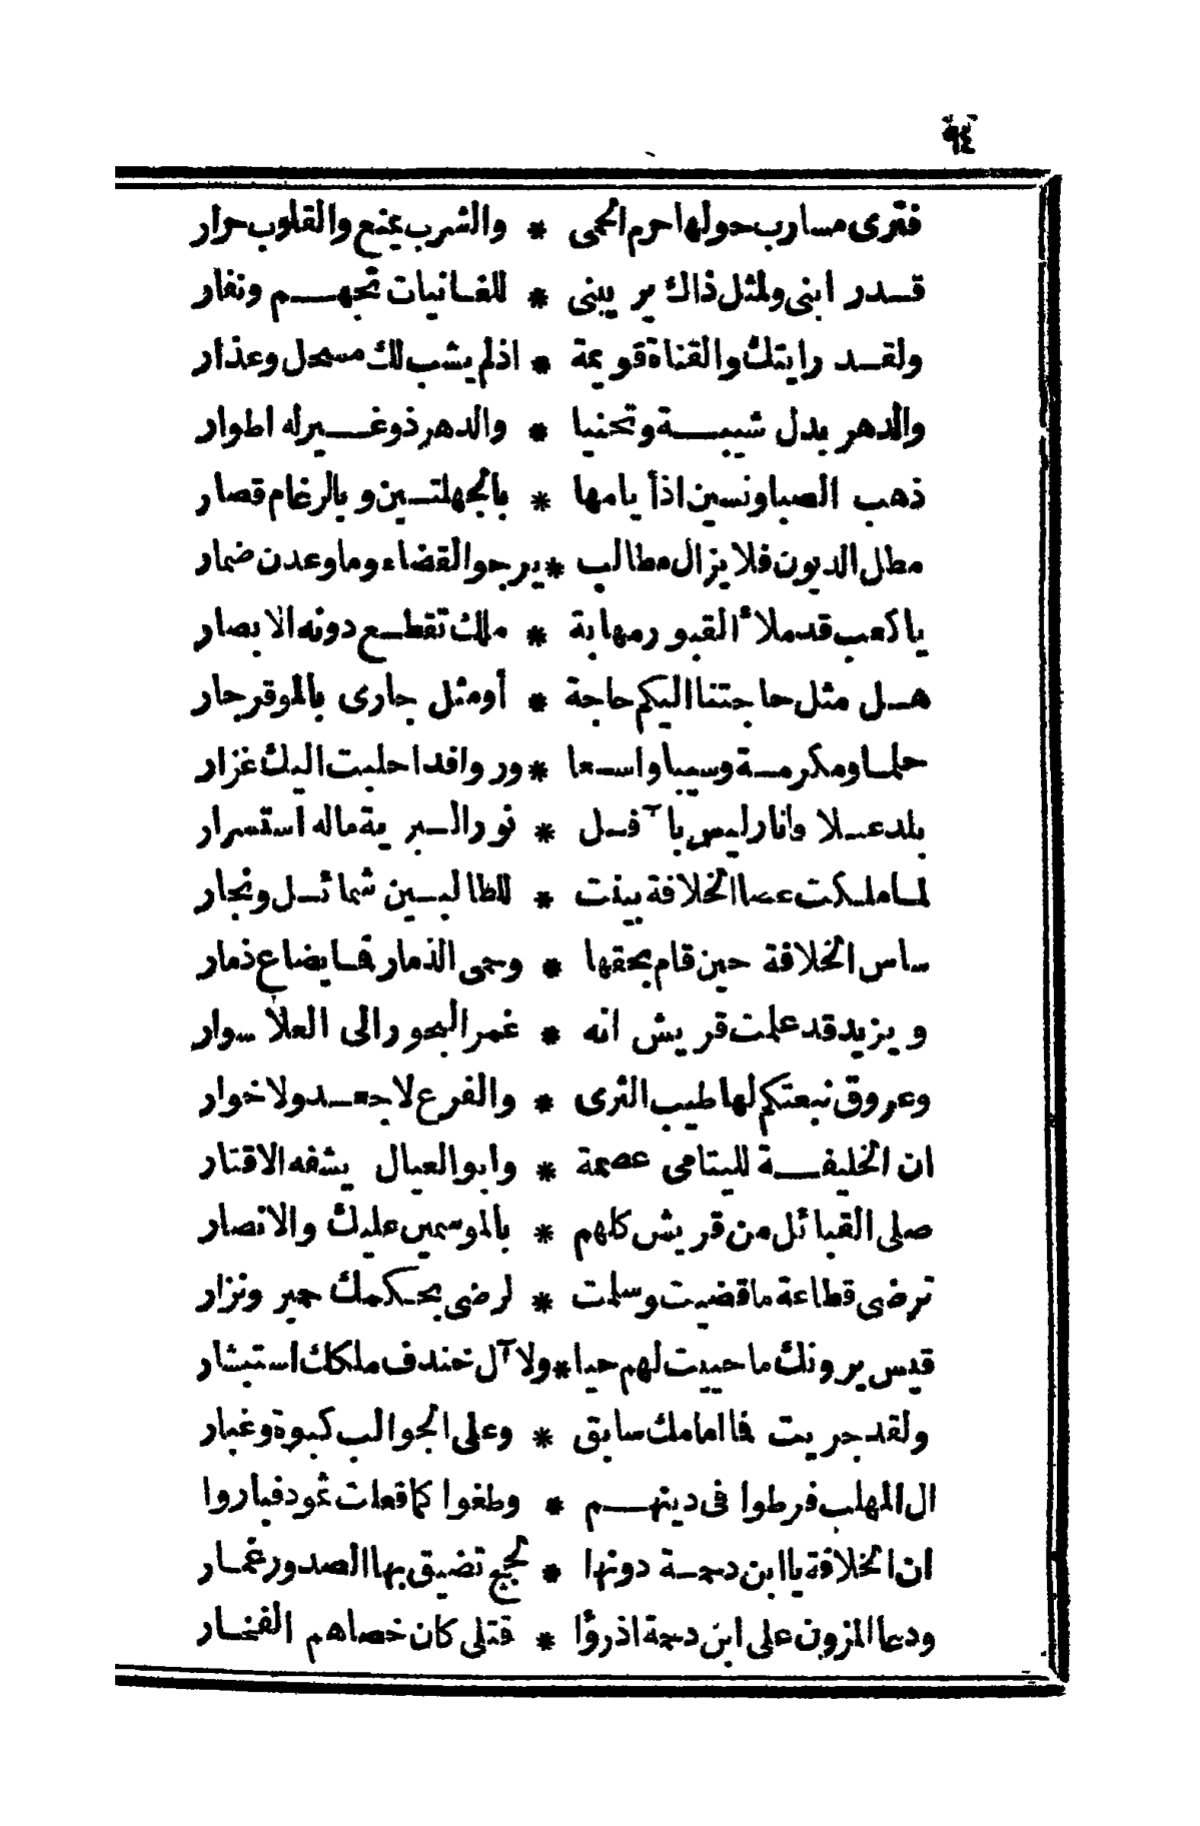 ٩٤
فترى مسارب حولها حرم الحمى * والشرب يمنع والقلوب حرار
قد رابنى ولمثل ذاك يريبنى * للغانيات تجهم ونفار
ولقد رايتك والقناة قويمة * اذلم يشب لك مسحل وعذار
والدهر بدل شيبة وتحنيا * والدهر ذو غير له اطوار
ذهب الصبا ونسين اذأيامها * بالجهلتين وبالرغام قصار
مطل الديون فلا يزال مطالب * يرجو القضاء وما وعدن ضمار
يا كعب قد ملأ القبور مهابة * ملك تقطع دونه الابصار
هل مثل حاجتنا اليكم حاجة * أو مثل جارى بالموقر جار
حلما ومكرمة وسيبا واسعا * وروافدا حلبت اليك غزار
بدر علا وانار ليس بآفل * نور البرية ماله استسرار
لما ملكت عصا الخلافة بينت * للطالبين شمائل ونجار
ساس الخلافة حين قام بحقها * وحمى الذمار فما يضاع ذمار
ويزيد قد علمت قريش انه * غمر البحور الى العلا سوار
وعروق نبعتكم لها طيب الثرى * والفرع لا جعد ولا خوار
ان الخليفة لليتامى عصمة * وابو العيال يشفه الاقتار
صلى القبائل من قريش كلهم * بالموسمين عليك والانصار
ترضى قطاعة ما قضيت وسلمت * لرضى بحكمك حمير ونزار
قيس يرونك ما حييت لهم حيا * ولآل خندف ملكك استبشار
ولقد جريت فما امامك سابق * وعلى الجوالب كبوة وغبار
ال المهلب فرطوا فى دينهم * وطغوا كما فعلت ثمود فباروا
ان الخلافة يا ابن دحمة دونها * لجج تضيق بها الصدور غمار
ودعا المزون على ابن دحمة اذ رؤا * قتلى كان خصاهم الفخار